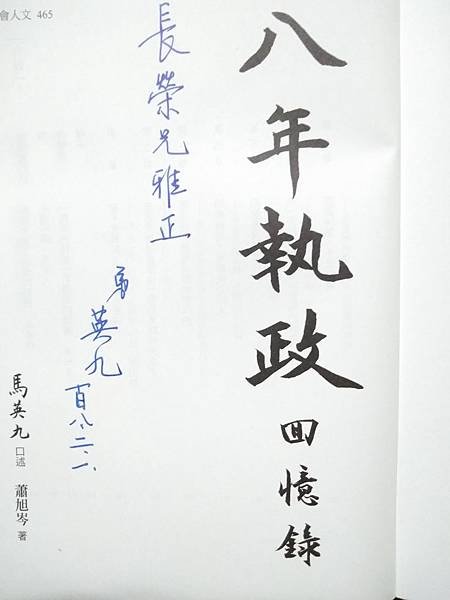 會人文 465
八年執政回憶錄
長榮兄雅正
馬英九
百八.二.一
馬英九 口述 蕭旭岑 著